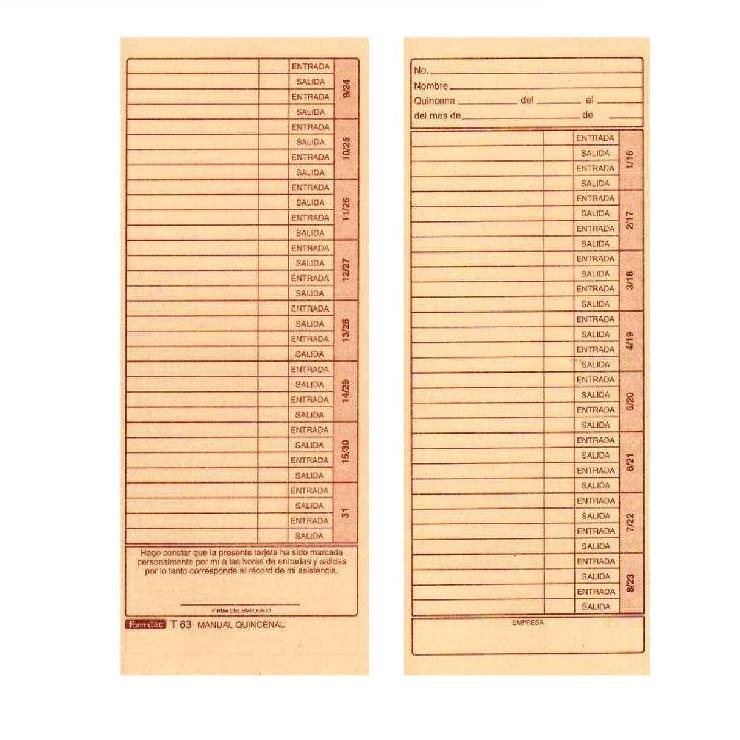 ENTRADA
SALIDA
ENTRADA
SALIDA
9/24
ENTRADA
SALIDA
ENTRADA
SALIDA
10/25
ENTRADA
SALIDA
ENTRADA
SALIDA
11/26
ENTRADA
SALIDA
ENTRADA
SALIDA
12/27
ENTRADA
SALIDA
ENTRADA
SALIDA
13/28
ENTRADA
SALIDA
ENTRADA
SALIDA
14/29
ENTRADA
SALIDA
ENTRADA
SALIDA
15/30
ENTRADA
SALIDA
ENTRADA
SALIDA
31
Hago constar que la presente tarjeta ha sido marcada
personalmente por mí a las horas de entradas y salidas
por lo tanto corresponde al récord de mi asistencia.
FIRMA DEL EMPLEADO
T 63 MANUAL QUINCENAL
No.
Nombre
Quincena del al
del mes de de
ENTRADA
SALIDA
ENTRADA
SALIDA
1/16
ENTRADA
SALIDA
ENTRADA
SALIDA
2/17
ENTRADA
SALIDA
ENTRADA
SALIDA
3/18
ENTRADA
SALIDA
ENTRADA
SALIDA
4/19
ENTRADA
SALIDA
ENTRADA
SALIDA
5/20
ENTRADA
SALIDA
ENTRADA
SALIDA
6/21
ENTRADA
SALIDA
ENTRADA
SALIDA
7/22
ENTRADA
SALIDA
ENTRADA
SALIDA
8/23
EMPRESA